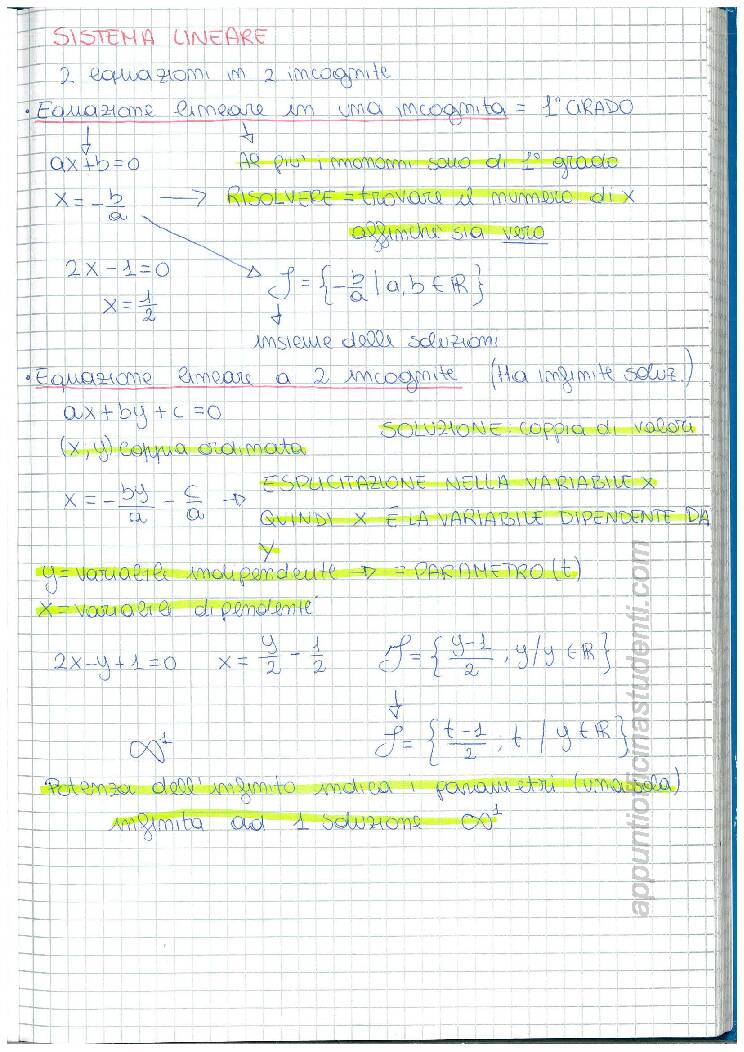 SISTEMA LINEARE
2 equazioni in 2 incognite
• Equazione lineare in una incognita = 1° GRADO
ax+b=0 Al più i monomi sono di 1° grado
x = -b/a → RISOLVERE = trovare il numero di x
affinché sia vero
2x-1=0
x = 1/2
S = {-b/a | a, b ∈ R}
insieme delle soluzioni
• Equazione lineare a 2 incognite (Ha infinite soluz.)
ax+by+c=0
SOLUZIONE: coppia di valori
(x, y) coppia ordinata
x = -by/a - c/a → ESPLICITAZIONE NELLA VARIABILE x
QUINDI X È LA VARIABILE DIPENDENTE DA
y
y = variabile indipendente → = PARAMETRO (t)
x = variabile dipendente
2x-y+1=0 x = y/2 - 1/2 S = {y-1/2 ; y / y ∈ R}
∞¹ S = {t-1/2 ; t / y ∈ R}
Potenza dell'infinito indica i parametri (una sola)
infinita ad 1 soluzione ∞¹
appuntiofficinastudenti.com